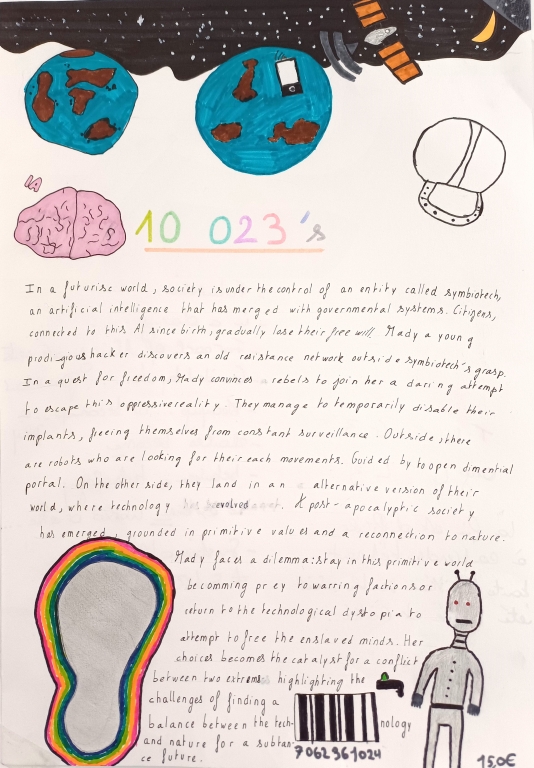 IA
10 023's
In a futurisc world, society is under the control of an entity called symbiotech,
an artificial intelligence that has merged with governmental systems. Citizens,
connected to this AI since birth, gradually lose their free will. Mady a young
prodigious hacker discovers an old resistance network outside symbiotech's grasp.
In a quest for freedom, Mady convinces rebels to join her a daring attempt
to escape this oppressive reality. They manage to temporarily disable their
implants, freeing themselves from constant surveillance. Outside, there
are robots who are looking for their each movements. Guided by to open dimential
portal. On the other side, they land in an alternative version of their
world, where technology evolved. A post-apocalyptic society
has emerged, grounded in primitive values and a reconnection to nature.
Mady faces a dilemma: stay in this primitive world
becomming prey to warring factions or
return to the technological dystopia to
attempt to free the enslaved minds. Her
choices becomes the catalyst for a conflict
between two extrems highlighting the
challenges of finding a
balance between the tech-nology
and nature for a subtan-
ce future.
7062361024
15,0€